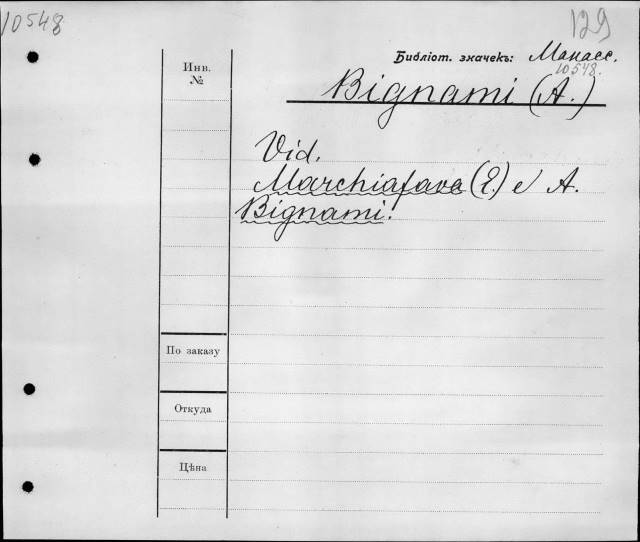 10548
129
Инв.
№
Библіот. значекъ: Манасс.
10548.
Bignami (A.)
Vid.
Marchiafava (E.) e A.
Bignami.
По заказу
Откуда
Цѣна